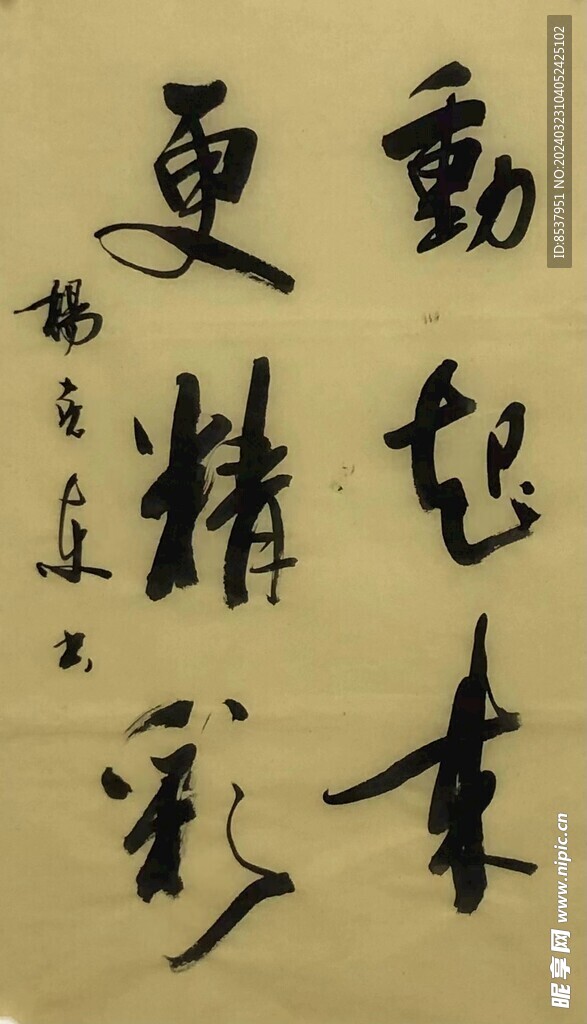 動起来
更精彩
楊克東书
ID:8537951 NO:20240323104052425102
昵享网 www.nipic.cn